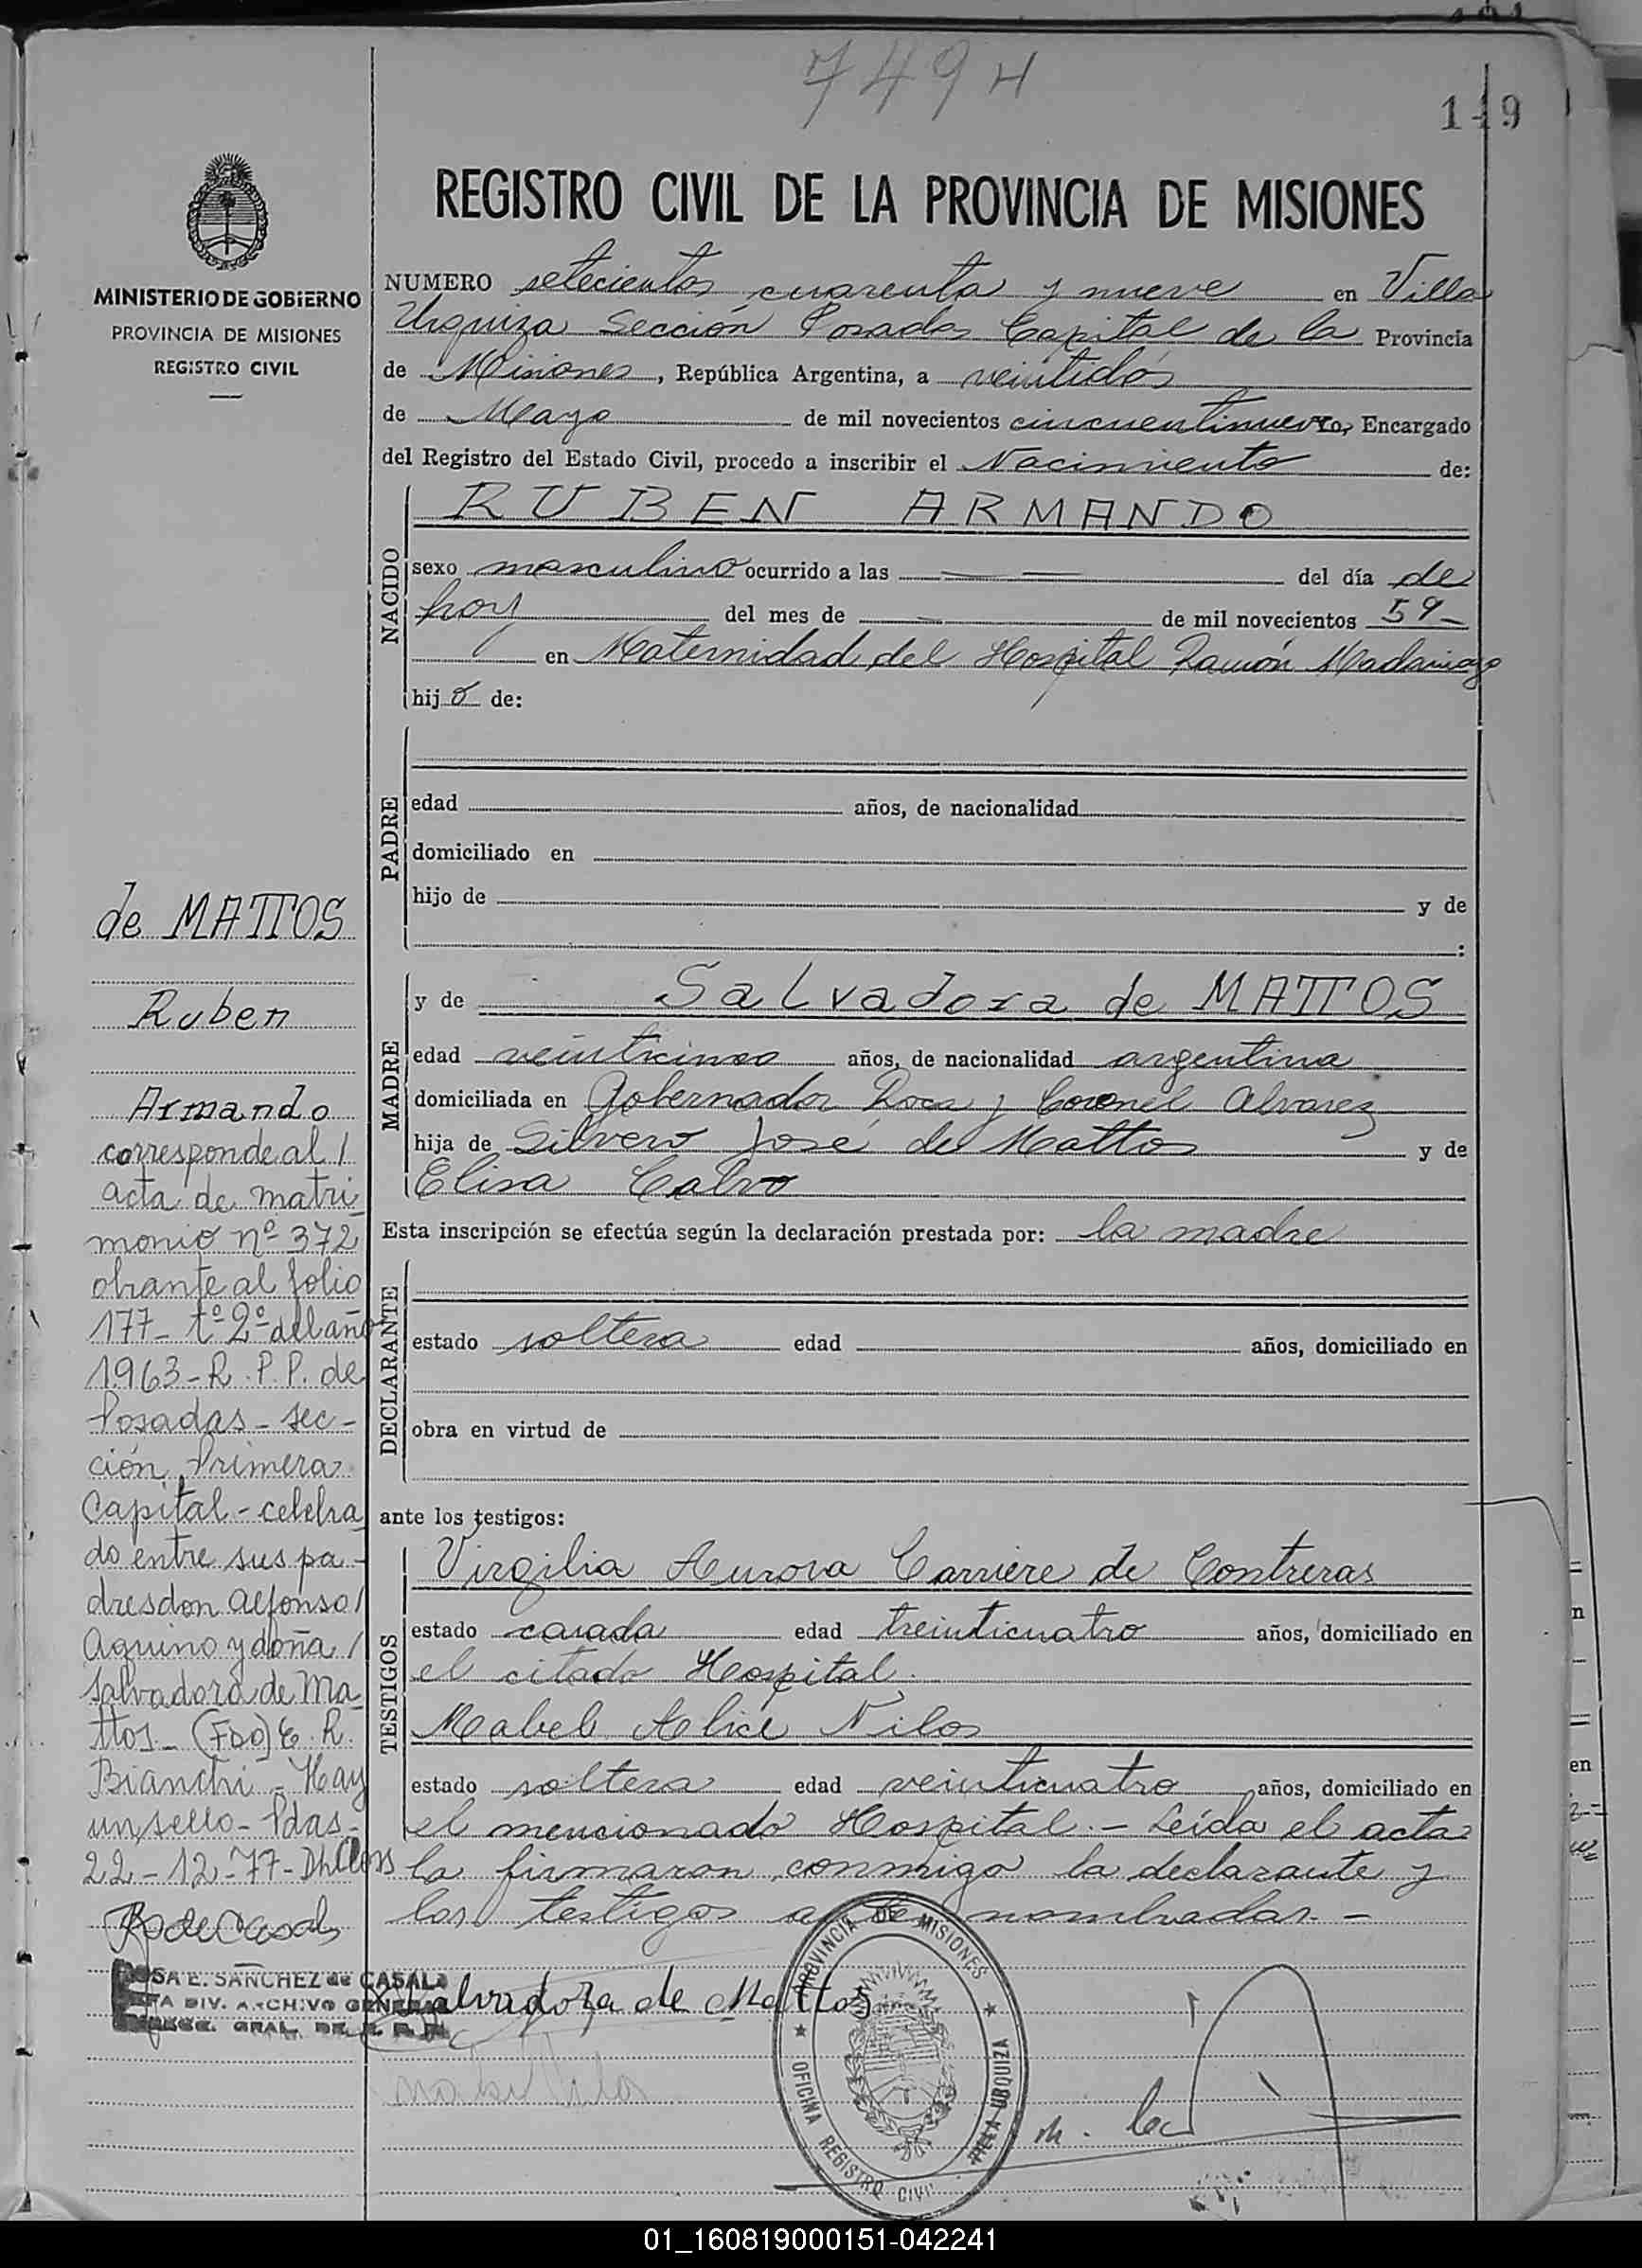 749
149
REGISTRO CIVIL DE LA PROVINCIA DE MISIONES
MINISTERIO DE GOBIERNO
PROVINCIA DE MISIONES
REGISTRO CIVIL
NUMERO setecientos cuarenta y nueve en Villa
Urquiza Sección Posadas Capital de la Provincia
de Misiones, República Argentina, a veintidós
de Mayo de mil novecientos cincuentinueve, Encargado
del Registro del Estado Civil, procedo a inscribir el Nacimiento de:
NACIDO
RUBEN ARMANDO
sexo masculino ocurrido a las — — del día de
hoy del mes de — de mil novecientos 59-
en Maternidad del Hospital Ramón Madariaga
hijo de:
PADRE
edad años, de nacionalidad
domiciliado en
hijo de y de
:
MADRE
y de Salvadora de MATTOS
edad veinticinco años, de nacionalidad argentina
domiciliada en Gobernador Roca y Coronel Alvarez
hija de Silverio José de Mattos y de
Elisa Calvo
Esta inscripción se efectúa según la declaración prestada por: la madre
DECLARANTE
estado soltera edad años, domiciliado en
obra en virtud de
ante los testigos:
TESTIGOS
Virgilia Aurora Carriere de Contreras
estado casada edad treinticuatro años, domiciliado en
el citado Hospital.
Mabel Alice Nilos
estado soltera edad veinticuatro años, domiciliado en
el mencionado Hospital.- Leída el acta
la firmaron conmigo la declarante y
los testigos nombrados.-
Salvadora de Mattos
PROVINCIA DE MISIONES
OFICINA REGISTRO CIVIL
VILLA URQUIZA
de MATTOS
Ruben
Armando
corresponde al /
acta de matri
monio nº 372
obrante al folio
177- tº 2º del año
1963-R.P.P. de
Posadas- sec-
ción Primera
Capital- celebra
do entre sus pa-
dres don Alfonso /
Aquino y doña /
Salvadora de Ma
ttos- (FDO) E. R.
Bianchi- Hay
un sello- Pdas-
22-12-77-
R de Casals
ROSA E. SANCHEZ de CASALS
JEFA DIV. ARCHIVO GENERAL
01_160819000151-042241